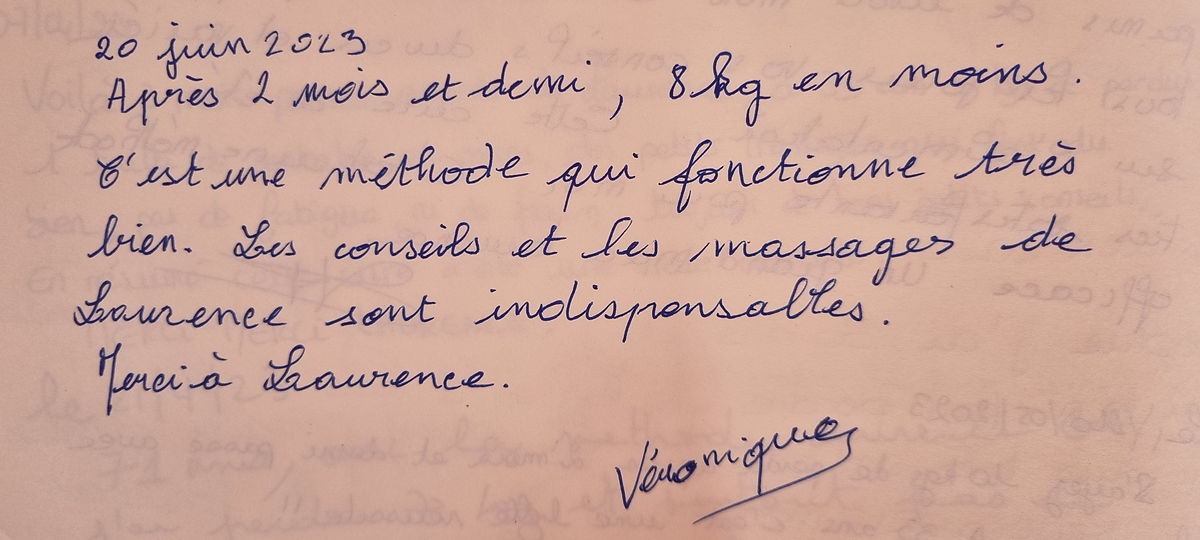 20 juin 2023
Après 2 mois et demi, 8 kg en moins.
C'est une méthode qui fonctionne très
bien. Les conseils et les massages de
Laurence sont indisponsables.
Merci à Laurence.
Véronique